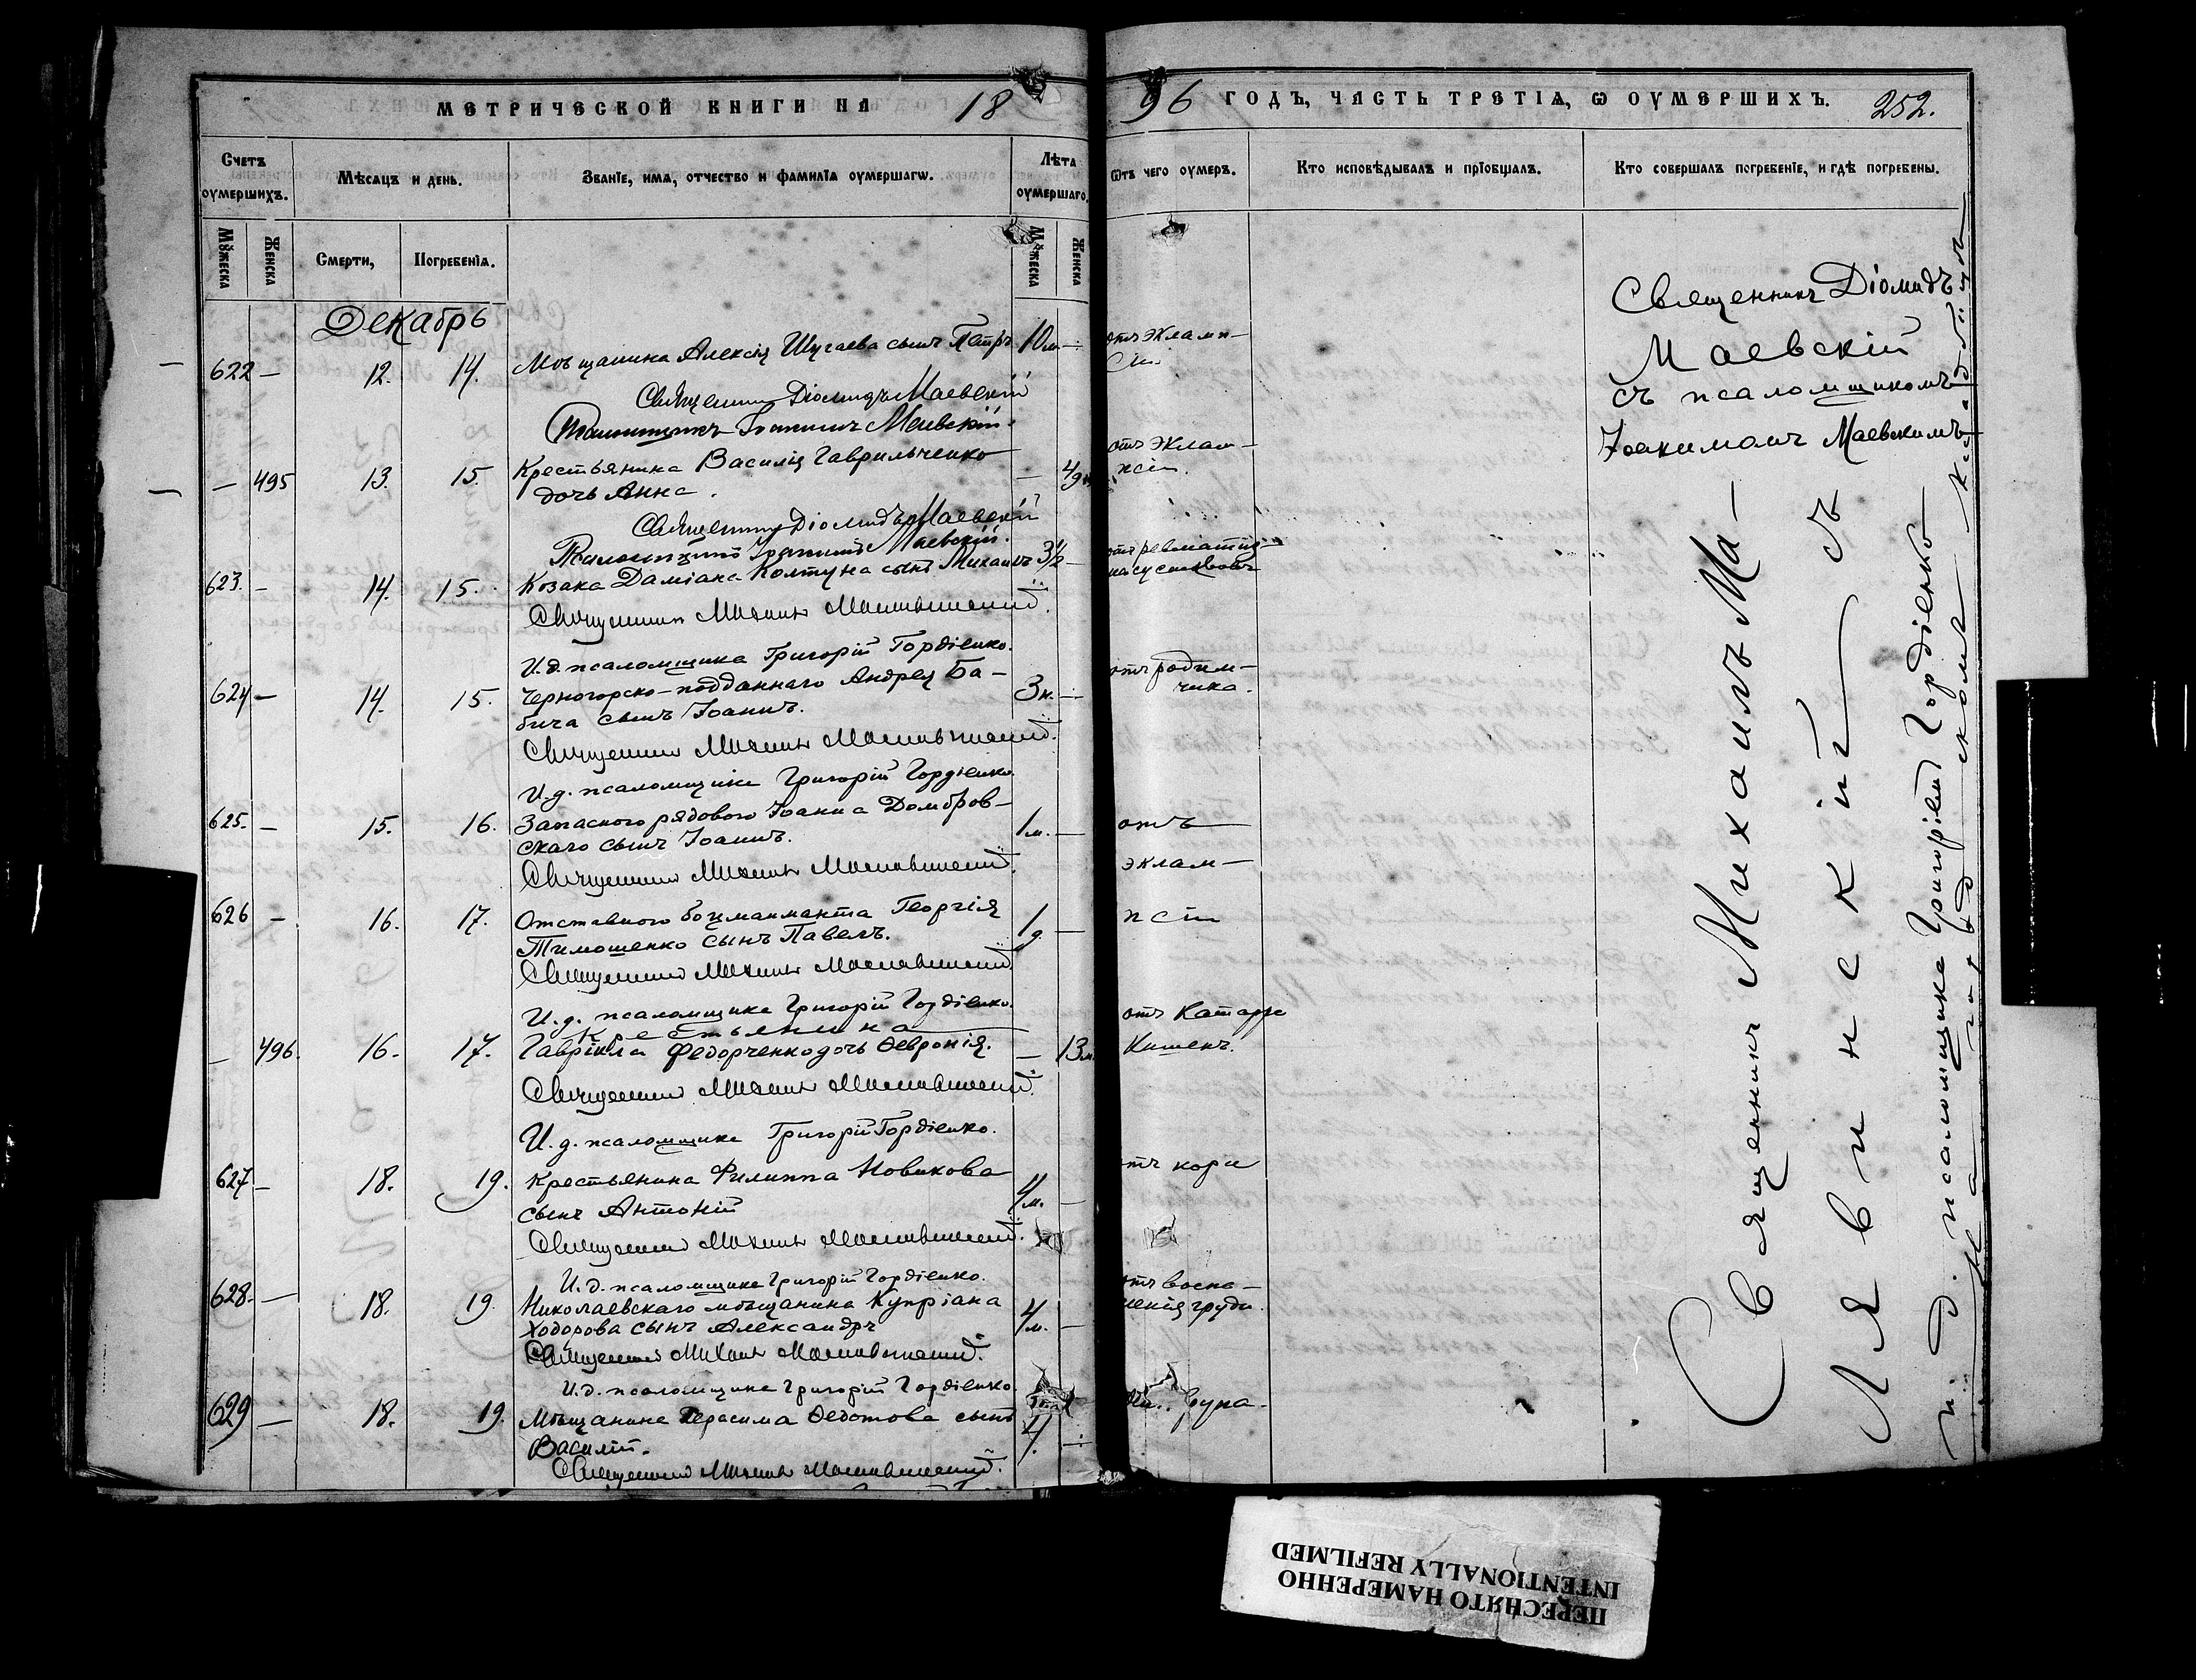 МЕТРИЧЕСКОЙ КНИГИ НА 1896 ГОДЪ, ЧАСТЬ ТРЕТІѦ, Ѡ ОУМЕРШИХЪ. 252.
Счетъ оумершихъ.
Мѣсяцъ и день.
Званіе, имя, отчество и фамилія оумершагѡ.
Лѣта оумершаго.
Ѿтъ чего оумеръ.
Кто исповѣдывалъ и пріобщалъ.
Кто совершалъ погребеніе, и гдѣ погребены.
Мужеска
Женска
Смерти,
Погребенія.
Мужеска
Женска
Декабрь
622 — 12. 14. Мѣщанина Алексія Шугаева сынъ Петръ 10 м. — отъ эклампсіи
Священникъ Діомидъ Маевскій
Псаломщикъ Іоакимъ Маевскій.
— 495 13. 15. Крестьянина Василія Гаврильченко — отъ эклам-
дочь Анна. псіи.
Священникъ Діомидъ Маевскій
Псаломщикъ Іоакимъ Маевскій.
623. — 14. 15. Козака Даміана Колтуна сынъ Михаилъ 3½ — отъ ревматиз-
ма суставовъ
Священникъ Михаилъ
И.д. псаломщика Григорій Гордіенко.
624 — 14. 15. Черногорско-подданнаго Андрея Ба- 3 н. — отъ родим-
бича сынъ Іоаннъ. чика.
Священникъ Михаилъ
И.д. псаломщика Григорій Гордіенко.
625. — 15. 16. Запаснаго рядового Іоанна Домбров- 1 м. — отъ
скаго сынъ Іоаннъ.
Священникъ Михаилъ
эклам-
626 — 16. 17. Отставного боцманмата Георгія 1 д. — псіи
Тимошенко сынъ Павелъ.
Священникъ Михаилъ
И.д. псаломщика Григорій Гордіенко.
Крестьянина отъ Катарра
— 496. 16. 17. Гавріила Федорченко дочь Ѳевронія. — 13 м. Кишекъ.
Священникъ Михаилъ
И.д. псаломщика Григорій Гордіенко.
627 — 18. 19. Крестьянина Филиппа Новикова 4 м. — отъ кори
сынъ Антоній
Священникъ Михаилъ
И.д. псаломщика Григорій Гордіенко.
628. — 18. 19. Николаевскаго мѣщанина Купріана 4 м. — отъ воспа-
ленія груди.
Ходорова сынъ Александръ
Священникъ Михаилъ
И.д. псаломщика Григорій Гордіенко.
629 — 18. 19. Мѣщанина Герасима Ѳедотова сынъ 4 — Крупа.
Василій.
Священникъ Михаилъ
Священникъ Діомидъ
Маевскій
съ псаломщикомъ
Іоакимомъ Маевскимъ
Священникъ Михаилъ Ма-
лявинскій съ
и. д. псаломщика Григоріемъ Гордіенко
На городскомъ кладбищѣ
ПЕРЕСНЯТО НАМЕРЕННО
INTENTIONALLY REFILMED